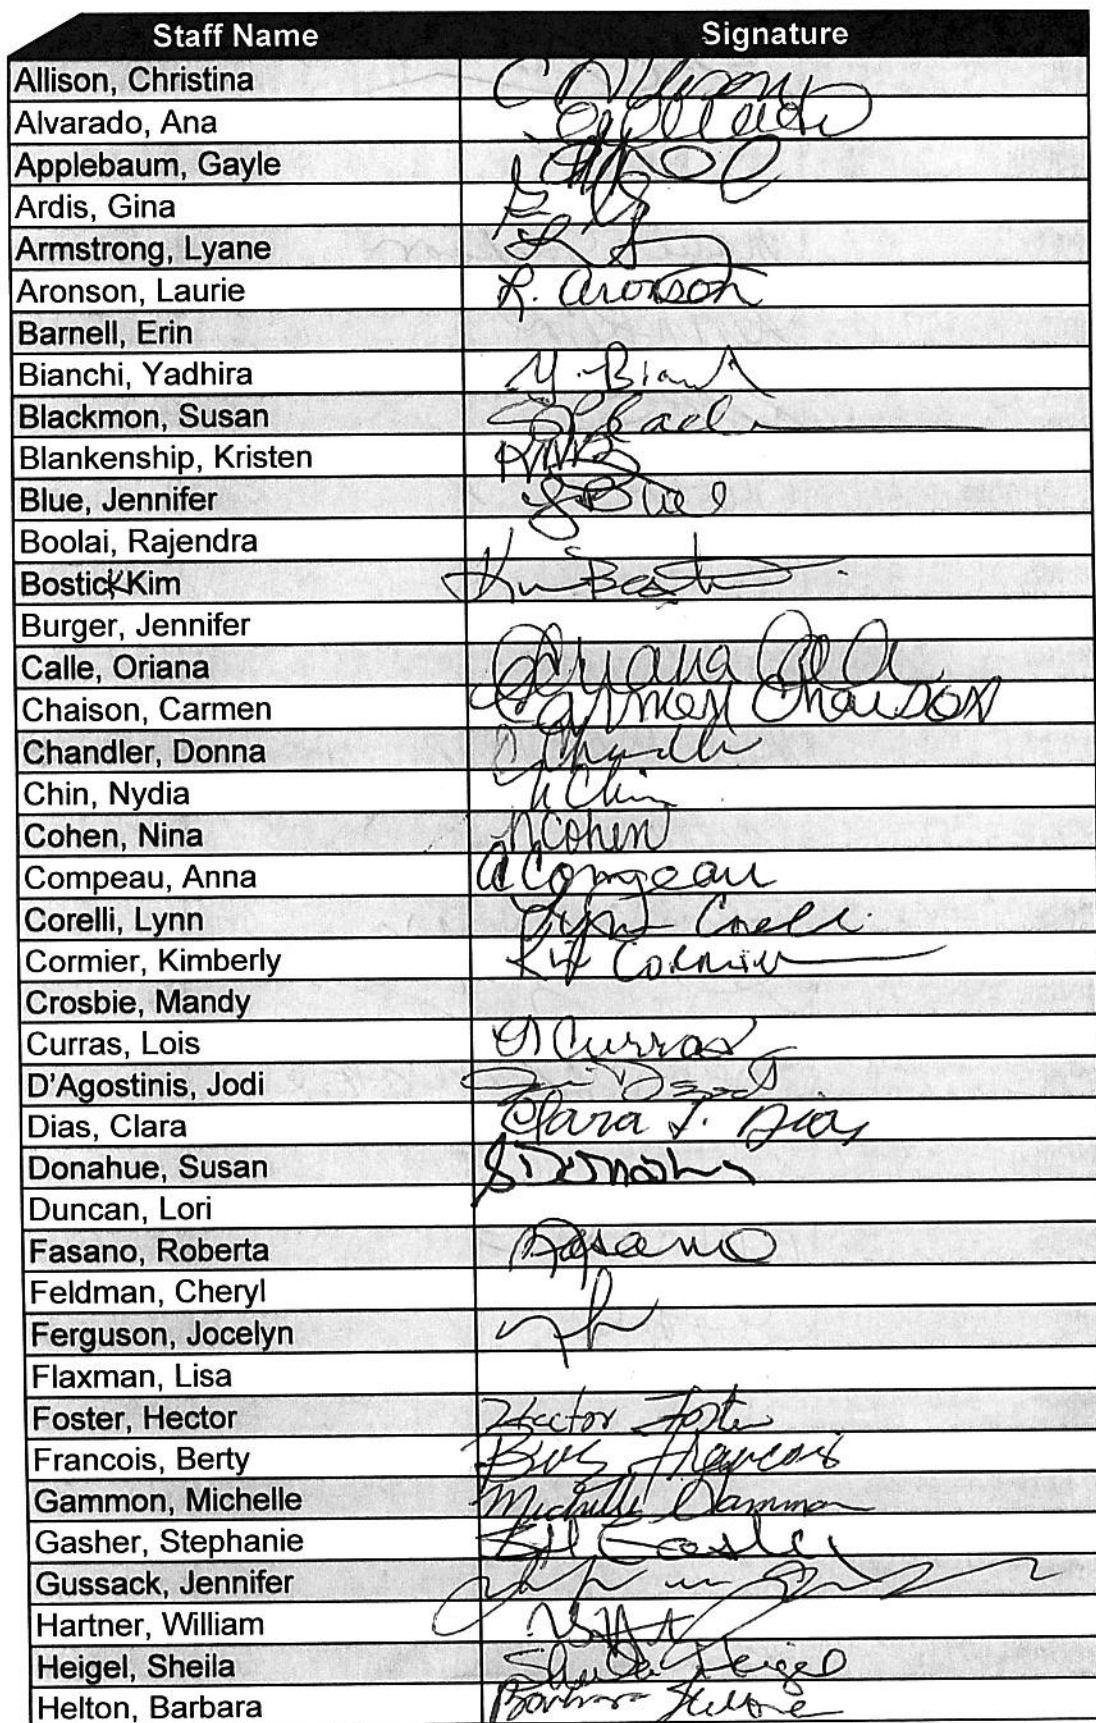 Staff Name Signature
Allison, Christina C Allison
Alvarado, Ana
Applebaum, Gayle
Ardis, Gina
Armstrong, Lyane
Aronson, Laurie L. Aronson
Barnell, Erin
Bianchi, Yadhira Y. Bian
Blackmon, Susan
Blankenship, Kristen
Blue, Jennifer J Blue
Boolai, Rajendra
Bostick Kim Kim
Burger, Jennifer
Calle, Oriana
Chaison, Carmen Carmen Chaison
Chandler, Donna
Chin, Nydia N Chin
Cohen, Nina N Cohen
Compeau, Anna A Compeau
Corelli, Lynn Lynn Corelli
Cormier, Kimberly Cormier
Crosbie, Mandy
Curras, Lois Curras
D'Agostinis, Jodi
Dias, Clara Clara T. Dias
Donahue, Susan S Donahue
Duncan, Lori
Fasano, Roberta Fasano
Feldman, Cheryl
Ferguson, Jocelyn
Flaxman, Lisa
Foster, Hector Hector Foster
Francois, Berty Francois
Gammon, Michelle Michelle Gammon
Gasher, Stephanie
Gussack, Jennifer
Hartner, William
Heigel, Sheila Sheila Heigel
Helton, Barbara Barbara Helton